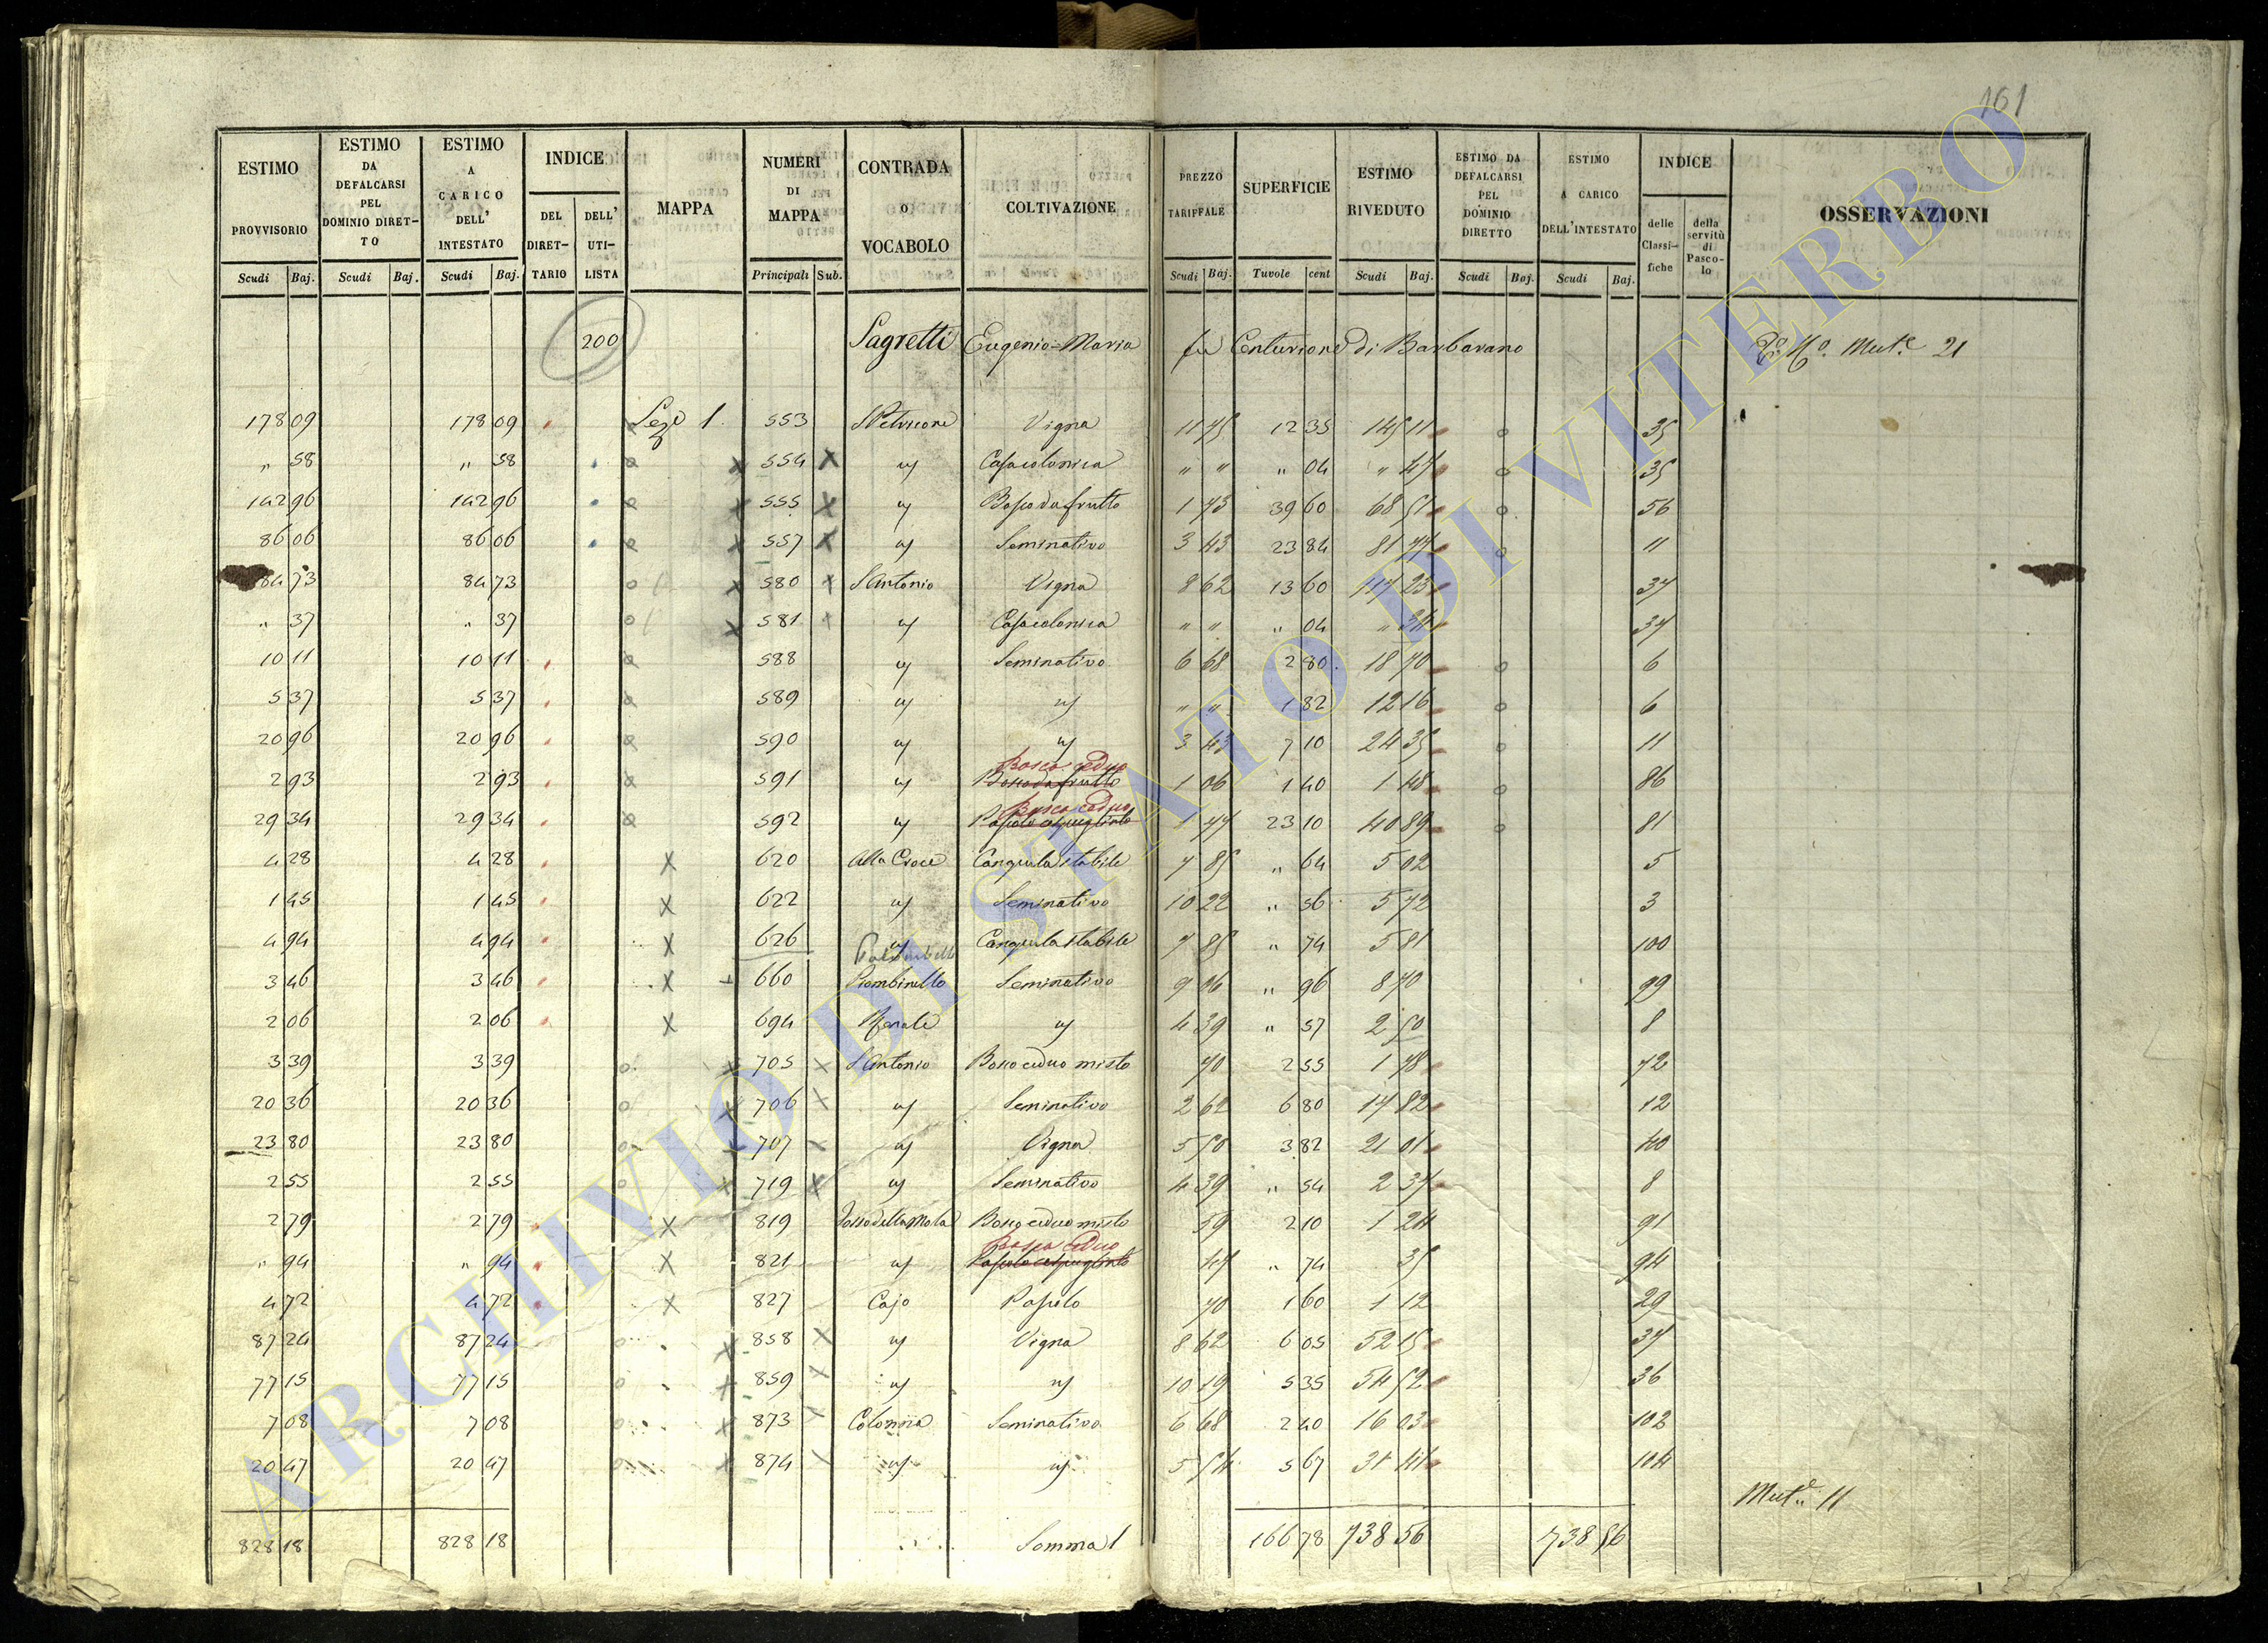 161
ESTIMO PROVVISORIO | ESTIMO DA DEFALCARSI PEL DOMINIO DIRETTO | ESTIMO A CARICO DELL' INTESTATO | INDICE | MAPPA | NUMERI DI MAPPA | CONTRADA O VOCABOLO | COLTIVAZIONE | PREZZO TARIFFALE | SUPERFICIE | ESTIMO RIVEDUTO | ESTIMO DA DEFALCARSI PEL DOMINIO DIRETTO | ESTIMO A CARICO DELL'INTESTATO | INDICE | OSSERVAZIONI
DEL DIRETTARIO | DELL' UTILISTA | delle Classifiche | della servitù di Pascolo
Scudi | Baj. | Scudi | Baj. | Scudi | Baj. | Principali | Sub. | Scudi | Baj. | Tavole | cent | Scudi | Baj. | Scudi | Baj. | Scudi | Baj.
200 Sagretti Eugenio=Maria fu Centurione di Barbarano Mut.e 21
178 09 178 09 Sez.e 1. 553 Vigna 11 75 12 35 145 11 35
" 58 " 58 554 Casa colonica " " " 04 " 47 35
142 96 142 96 555 Bosco da frutto 1 73 39 60 68 51 56
86 06 86 06 557 Seminativo 3 43 23 84 81 77 11
84 73 84 73 580 S. Antonio Vigna 8 62 13 60 117 23 37
" 37 " 37 581 Casa colonica " " " 04 " 34 37
10 11 10 11 588 Seminativo 6 68 2 80 18 70 6
5 37 5 37 589 " " 1 82 12 16 6
20 96 20 96 590 3 43 7 10 24 35 11
Bosco ceduo
2 93 2 93 591 Bosco da frutto 1 06 1 40 1 48 86
Bosco ceduo
29 34 29 34 592 Pascolo cespugliato 1 77 23 10 40 89 81
4 28 4 28 620 Alla Croce Canapula stabile 7 85 " 64 5 02 5
1 45 1 45 622 Seminativo 10 22 " 56 5 72 3
4 94 4 94 626 Canapula stabile 7 85 " 74 5 81 100
3 46 3 46 660 Piombinello Seminativo 9 06 " 96 8 70 99
2 06 2 06 694 4 39 " 57 2 50 8
3 39 3 39 705 S. Antonio Bosco ceduo misto 70 2 55 1 78 72
20 36 20 36 706 Seminativo 2 62 6 80 17 82 12
23 80 23 80 707 Vigna 5 50 3 82 21 01 40
2 55 2 55 719 Seminativo 4 39 " 54 2 37 8
2 79 2 79 819 Fosso della Mola Bosco ceduo misto 59 2 10 1 24 91
Bosco ceduo
" 94 " 94 821 Pascolo cespugliato 47 " 74 35 94
4 72 4 72 827 Cajo Pascolo 70 1 60 1 12 29
87 24 87 24 858 Vigna 8 62 6 05 52 15 37
77 15 77 15 859 10 19 5 35 54 52 36
7 08 7 08 873 Colonna Seminativo 6 68 2 40 16 03 102
20 47 20 47 874 5 54 5 67 31 41 104
Mut.e 11
828 18 828 18 Somma 1 166 78 738 56 738 56
ARCHIVIO DI STATO DI VITERBO